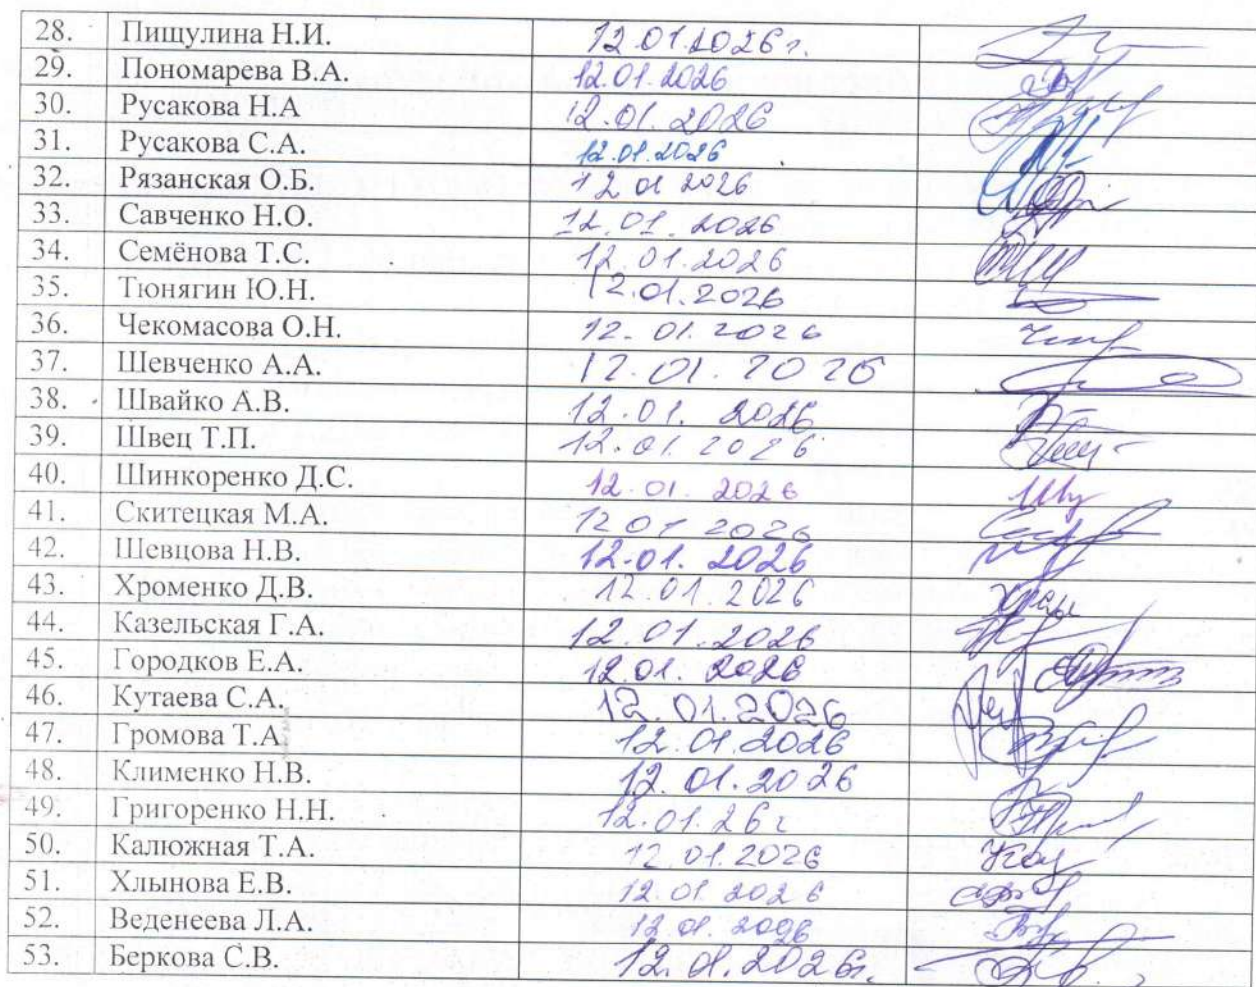 28. Пищулина Н.И. 12.01.2026г.
29. Пономарева В.А. 12.01.2026
30. Русакова Н.А 12.01.2026
31. Русакова С.А. 12.01.2026
32. Рязанская О.Б. 12 01 2026
33. Савченко Н.О. 12.01.2026
34. Семёнова Т.С. 12.01.2026
35. Тюнягин Ю.Н. 12.01.2026
36. Чекомасова О.Н. 12.01.2026
37. Шевченко А.А. 12.01.2026
38. Швайко А.В. 12.01.2026
39. Швец Т.П. 12.01.2026
40. Шинкоренко Д.С. 12.01.2026
41. Скитецкая М.А. 12 01 2026
42. Шевцова Н.В. 12.01.2026
43. Хроменко Д.В. 12.01.2026
44. Казельская Г.А. 12.01.2026
45. Городков Е.А. 12.01.2026
46. Кутаева С.А. 12.01.2026
47. Громова Т.А 12.01.2026
48. Клименко Н.В. 12.01.2026
49. Григоренко Н.Н. 12.01.26г
50. Калюжная Т.А. 12.01.2026
51. Хлынова Е.В. 12.01.2026
52. Веденеева Л.А. 12.01.2026
53. Беркова С.В. 12.01.2026г.